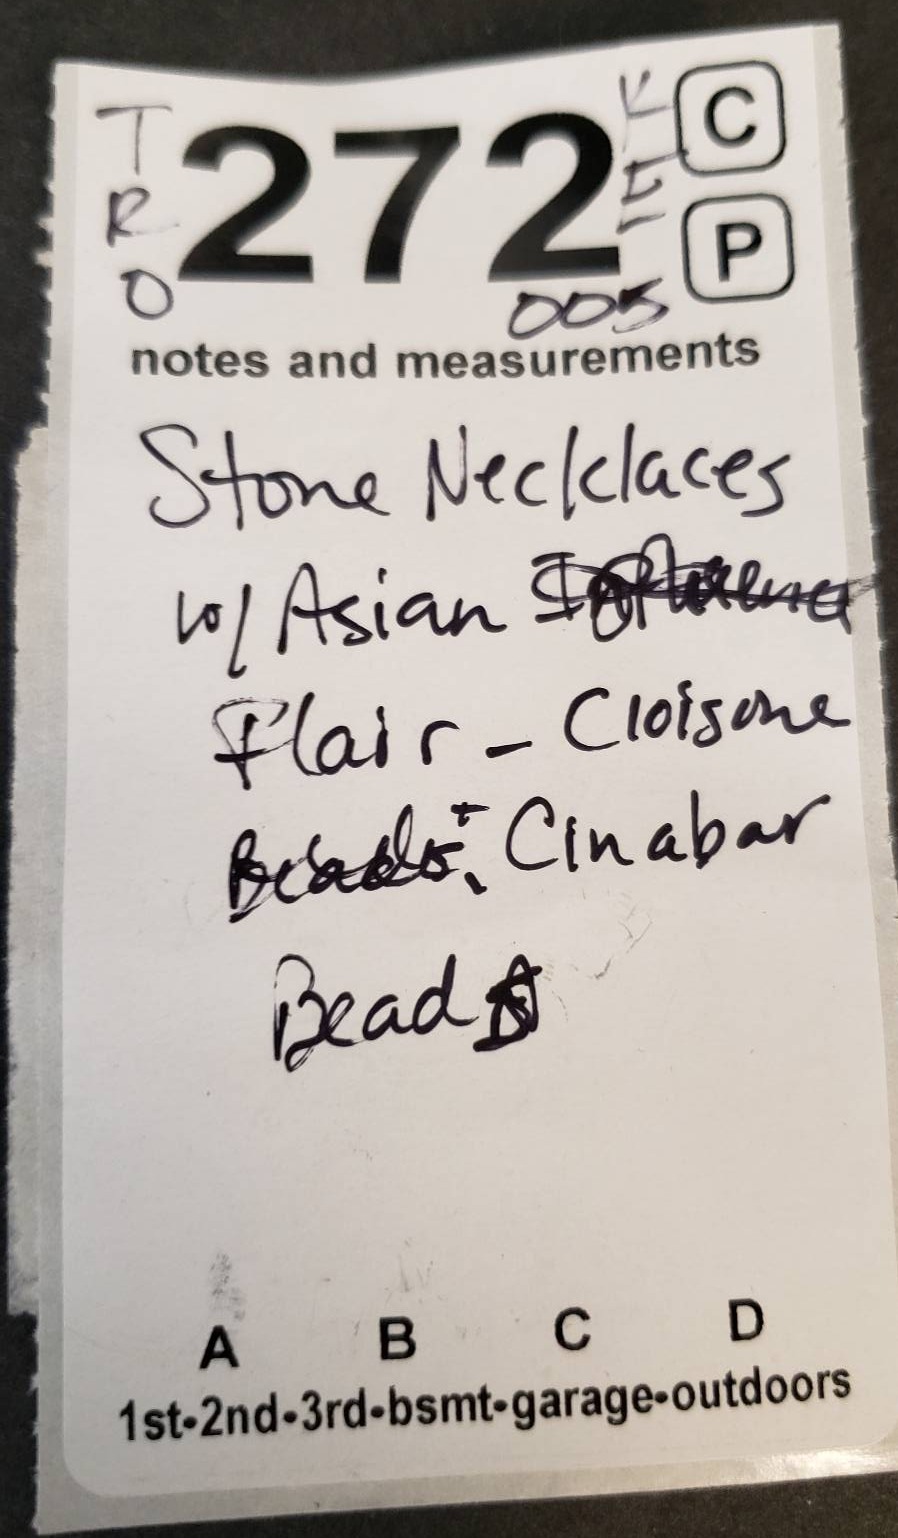 TRO
272
KEI
C
P
005
notes and measurements
Stone Necklaces
w/ Asian
Flair - Cloisone
+ Cinabar
Beads
A B C D
1st•2nd•3rd•bsmt•garage•outdoors